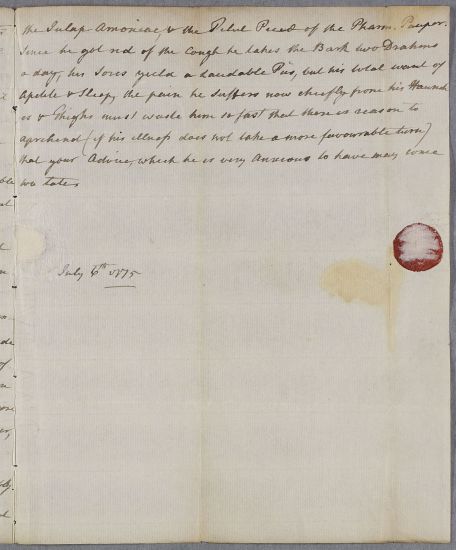 the Julap Amoniac, & the Pilul Picea of the Pharm. Pauper.
Since he got rid of the Cough he takes the Bark two Drahms
a day, his Sores yield a Laudable Pus, but his total want of
Apetite & Sleep, the pain he suffers now cheefly from his Haunch
es & thighs must waste him so fast that there is reason to
aprehend (if his illness does not take a more favourable turn)
that your Advice, which he is very Anxious to have may come
too late.
July 6th 1775